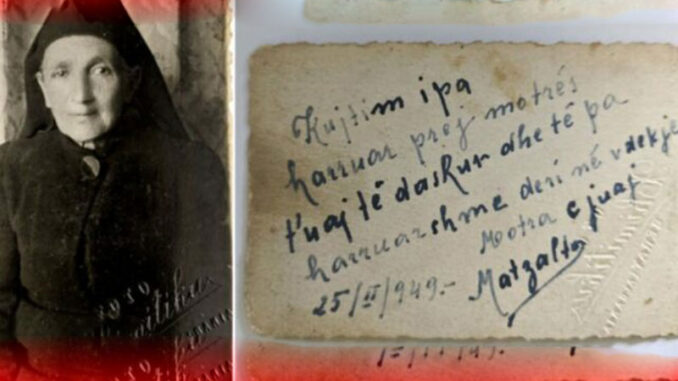 Kujtim i pa
harruar prej motrës
t'uaj të daskur dhe të pa
harruarshme deri në vdekje
Motra e juaj
Matzalta
25/II/949.-